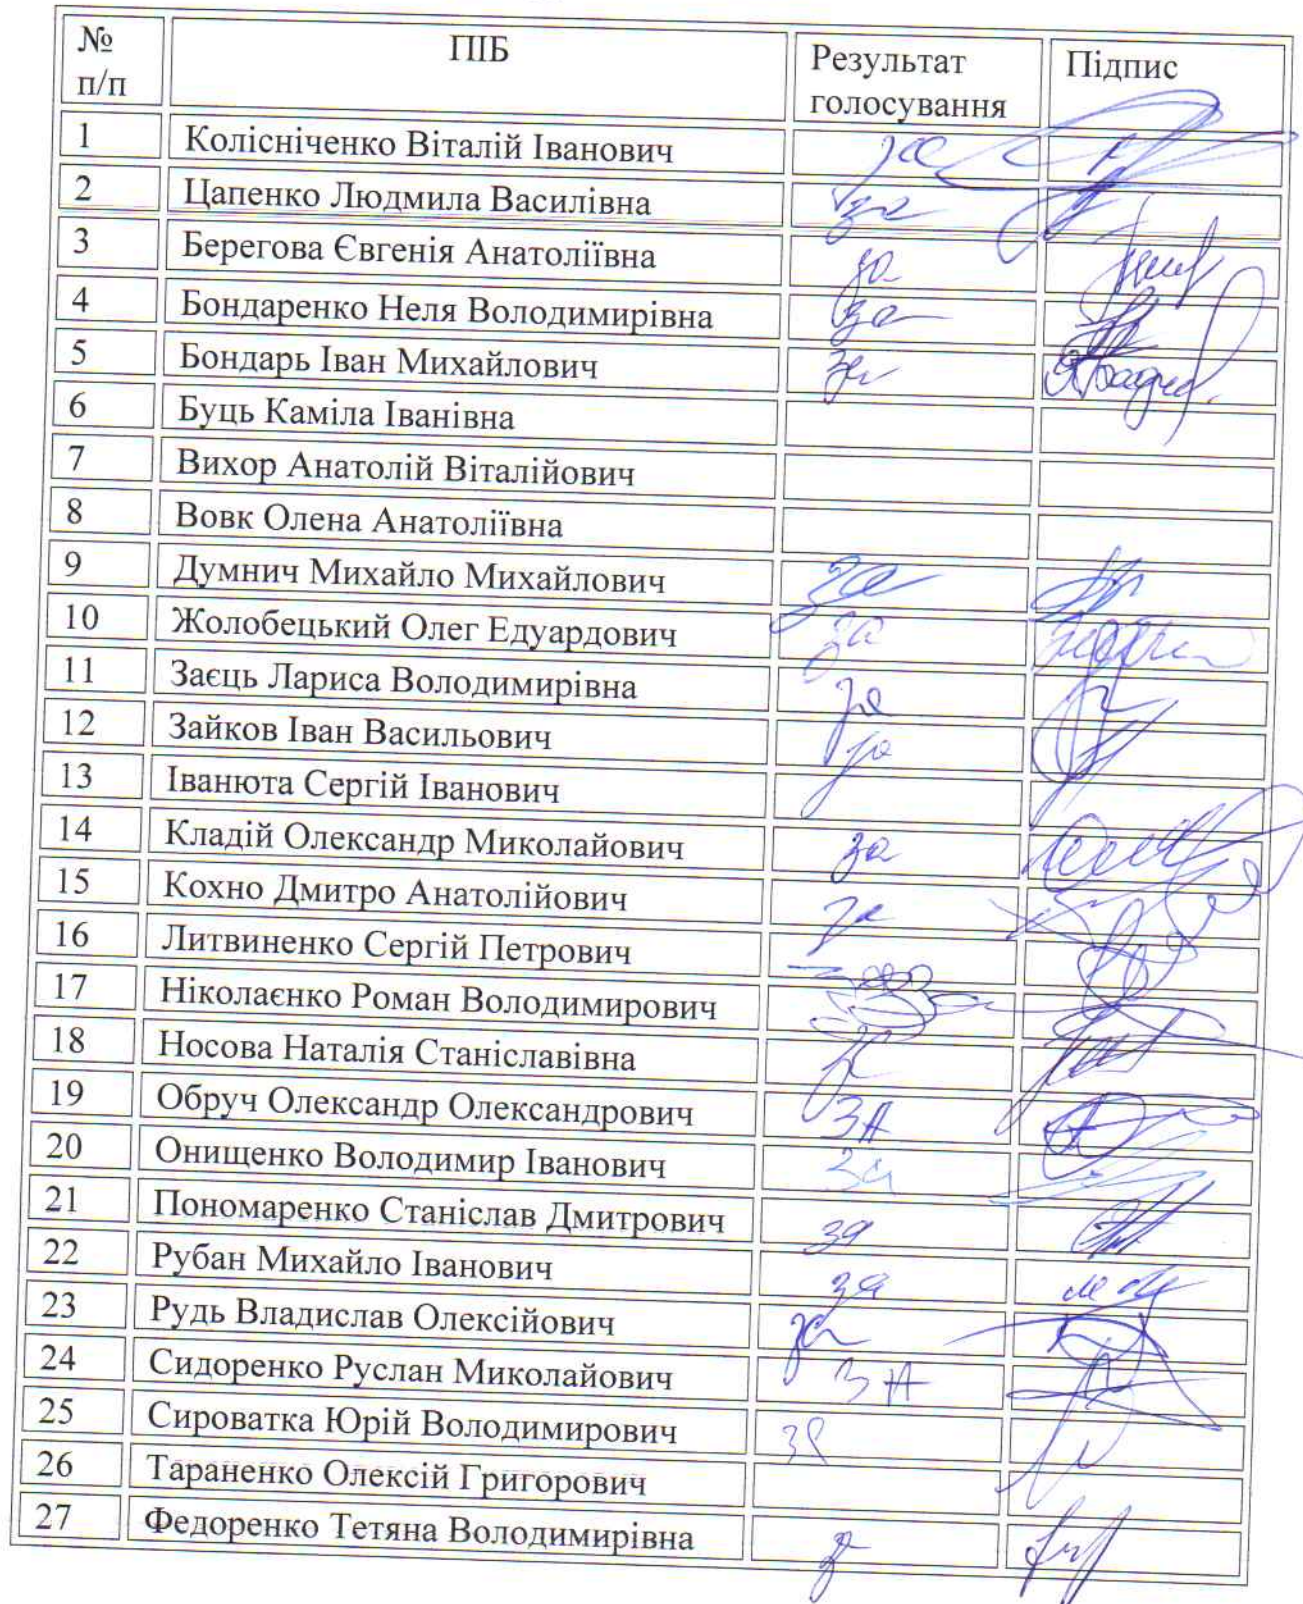 № п/п ПІБ Результат голосування Підпис
1 Колісніченко Віталій Іванович за
2 Цапенко Людмила Василівна за
3 Берегова Євгенія Анатоліївна за
4 Бондаренко Неля Володимирівна за
5 Бондарь Іван Михайлович за
6 Буць Каміла Іванівна
7 Вихор Анатолій Віталійович
8 Вовк Олена Анатоліївна
9 Думнич Михайло Михайлович за
10 Жолобецький Олег Едуардович за
11 Заєць Лариса Володимирівна за
12 Зайков Іван Васильович за
13 Іванюта Сергій Іванович
14 Кладій Олександр Миколайович за
15 Кохно Дмитро Анатолійович за
16 Литвиненко Сергій Петрович
17 Ніколаєнко Роман Володимирович
18 Носова Наталія Станіславівна за
19 Обруч Олександр Олександрович ЗА
20 Онищенко Володимир Іванович за
21 Пономаренко Станіслав Дмитрович за
22 Рубан Михайло Іванович за
23 Рудь Владислав Олексійович за
24 Сидоренко Руслан Миколайович ЗА
25 Сироватка Юрій Володимирович за
26 Тараненко Олексій Григорович
27 Федоренко Тетяна Володимирівна